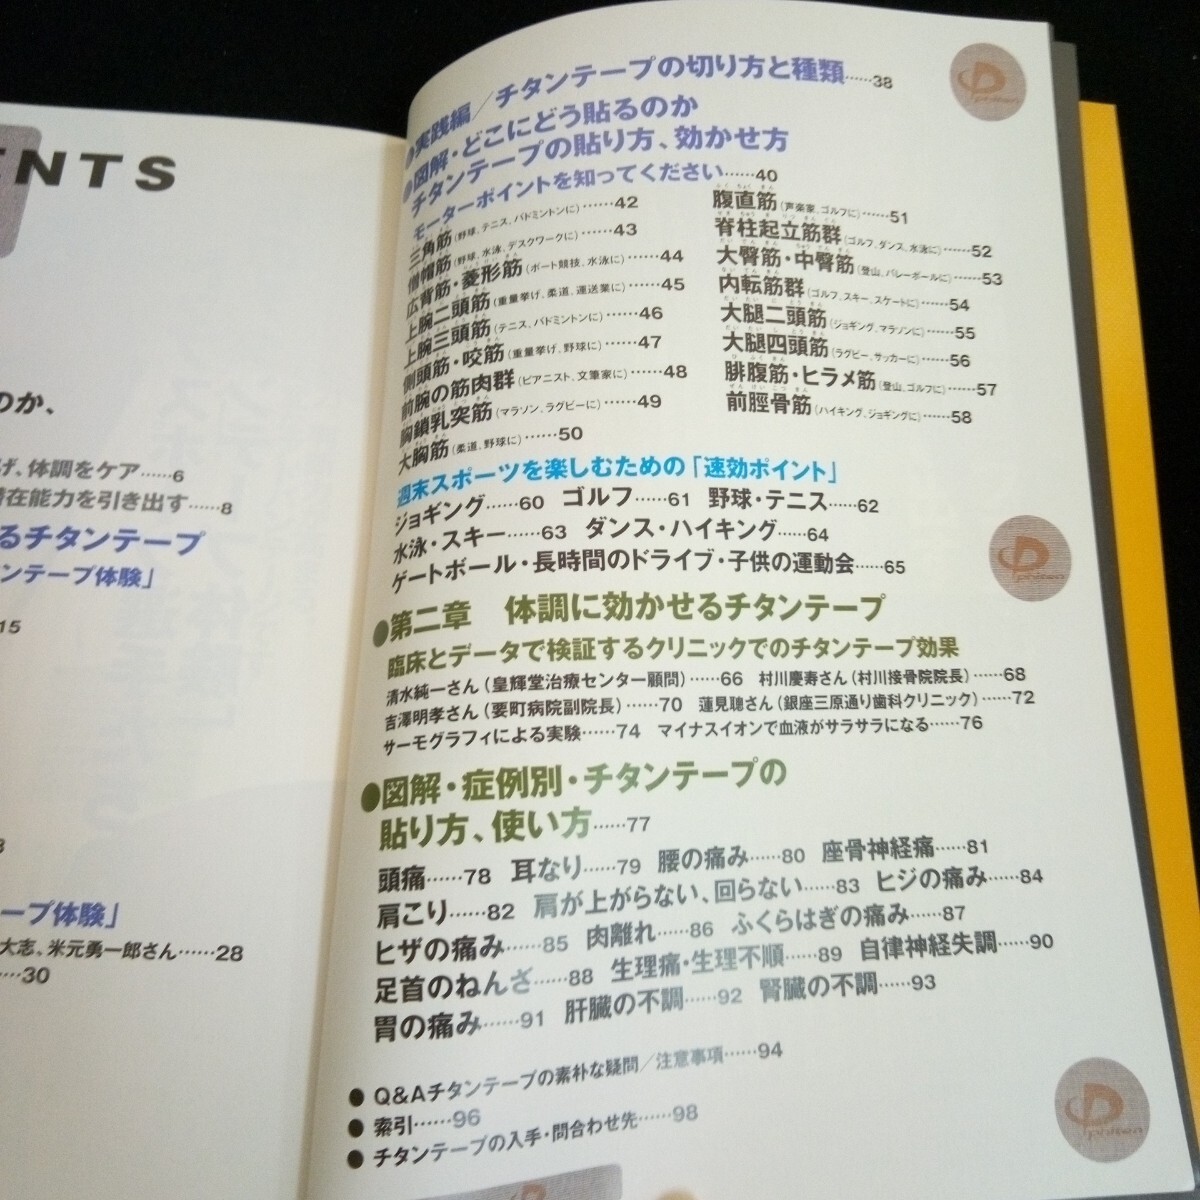 ENTS
のか、
げ、体調をケア……6
潜在能力を引き出す……8
るチタンテープ
ンテープ体験」
15
3
ープ体験」
大志、米元勇一郎さん……28
……30
●実践編／チタンテープの切り方と種類……38
●図解・どこにどう貼るのか
チタンテープの貼り方、効かせ方
モーターポイントを知ってください……40
三角筋(野球、テニス、バドミントンに)……42
僧帽筋(野球、水泳、デスクワークに)……43
広背筋・菱形筋(ボート競技、水泳に)……44
上腕二頭筋(重量挙げ、柔道、運送業に)……45
上腕三頭筋(テニス、バドミントンに)……46
側頭筋・咬筋(重量挙げ、野球に)……47
前腕の筋肉群(ピアニスト、文筆家に)……48
胸鎖乳突筋(マラソン、ラグビーに)……49
大胸筋(柔道、野球に)……50
腹直筋(声楽家、ゴルフに)……51
脊柱起立筋群(ゴルフ、ダンス、水泳に)……52
大臀筋・中臀筋(登山、バレーボールに)……53
内転筋群(ゴルフ、スキー、スケートに)……54
大腿二頭筋(ジョギング、マラソンに)……55
大腿四頭筋(ラグビー、サッカーに)……56
腓腹筋・ヒラメ筋(登山、ゴルフに)……57
前脛骨筋(ハイキング、ジョギングに)……58
週末スポーツを楽しむための「速効ポイント」
ジョギング……60 ゴルフ……61 野球・テニス……62
水泳・スキー……63 ダンス・ハイキング……64
ゲートボール・長時間のドライブ・子供の運動会……65
●第二章 体調に効かせるチタンテープ
臨床とデータで検証するクリニックでのチタンテープ効果
清水純一さん(皇輝堂治療センター顧問)……66 村川慶寿さん(村川接骨院院長)……68
吉澤明孝さん(要町病院副院長)……70 蓮見聰さん(銀座三原通り歯科クリニック)……72
サーモグラフィによる実験……74 マイナスイオンで血液がサラサラになる……76
●図解・症例別・チタンテープの
貼り方、使い方……77
頭痛……78 耳なり……79 腰の痛み……80 座骨神経痛……81
肩こり……82 肩が上がらない、回らない……83 ヒジの痛み……84
ヒザの痛み……85 肉離れ……86 ふくらはぎの痛み……87
足首のねんざ……88 生理痛・生理不順……89 自律神経失調……90
胃の痛み……91 肝臓の不調……92 腎臓の不調……93
● Q&Aチタンテープの素朴な疑問／注意事項……94
● 索引……96
● チタンテープの入手・問合わせ先……98
phiten
phiten
phiten